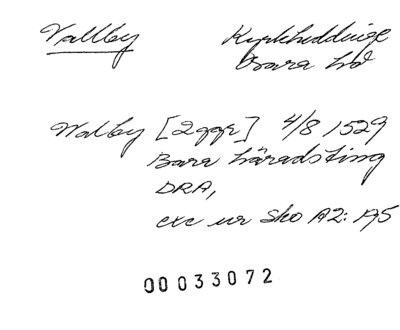 Vallby Kyrkheddinge
Bara hd
Walby [2ggr] 4/8 1529
Bara häradsting
DRA,
exc ur Sko A2: 195
00033072